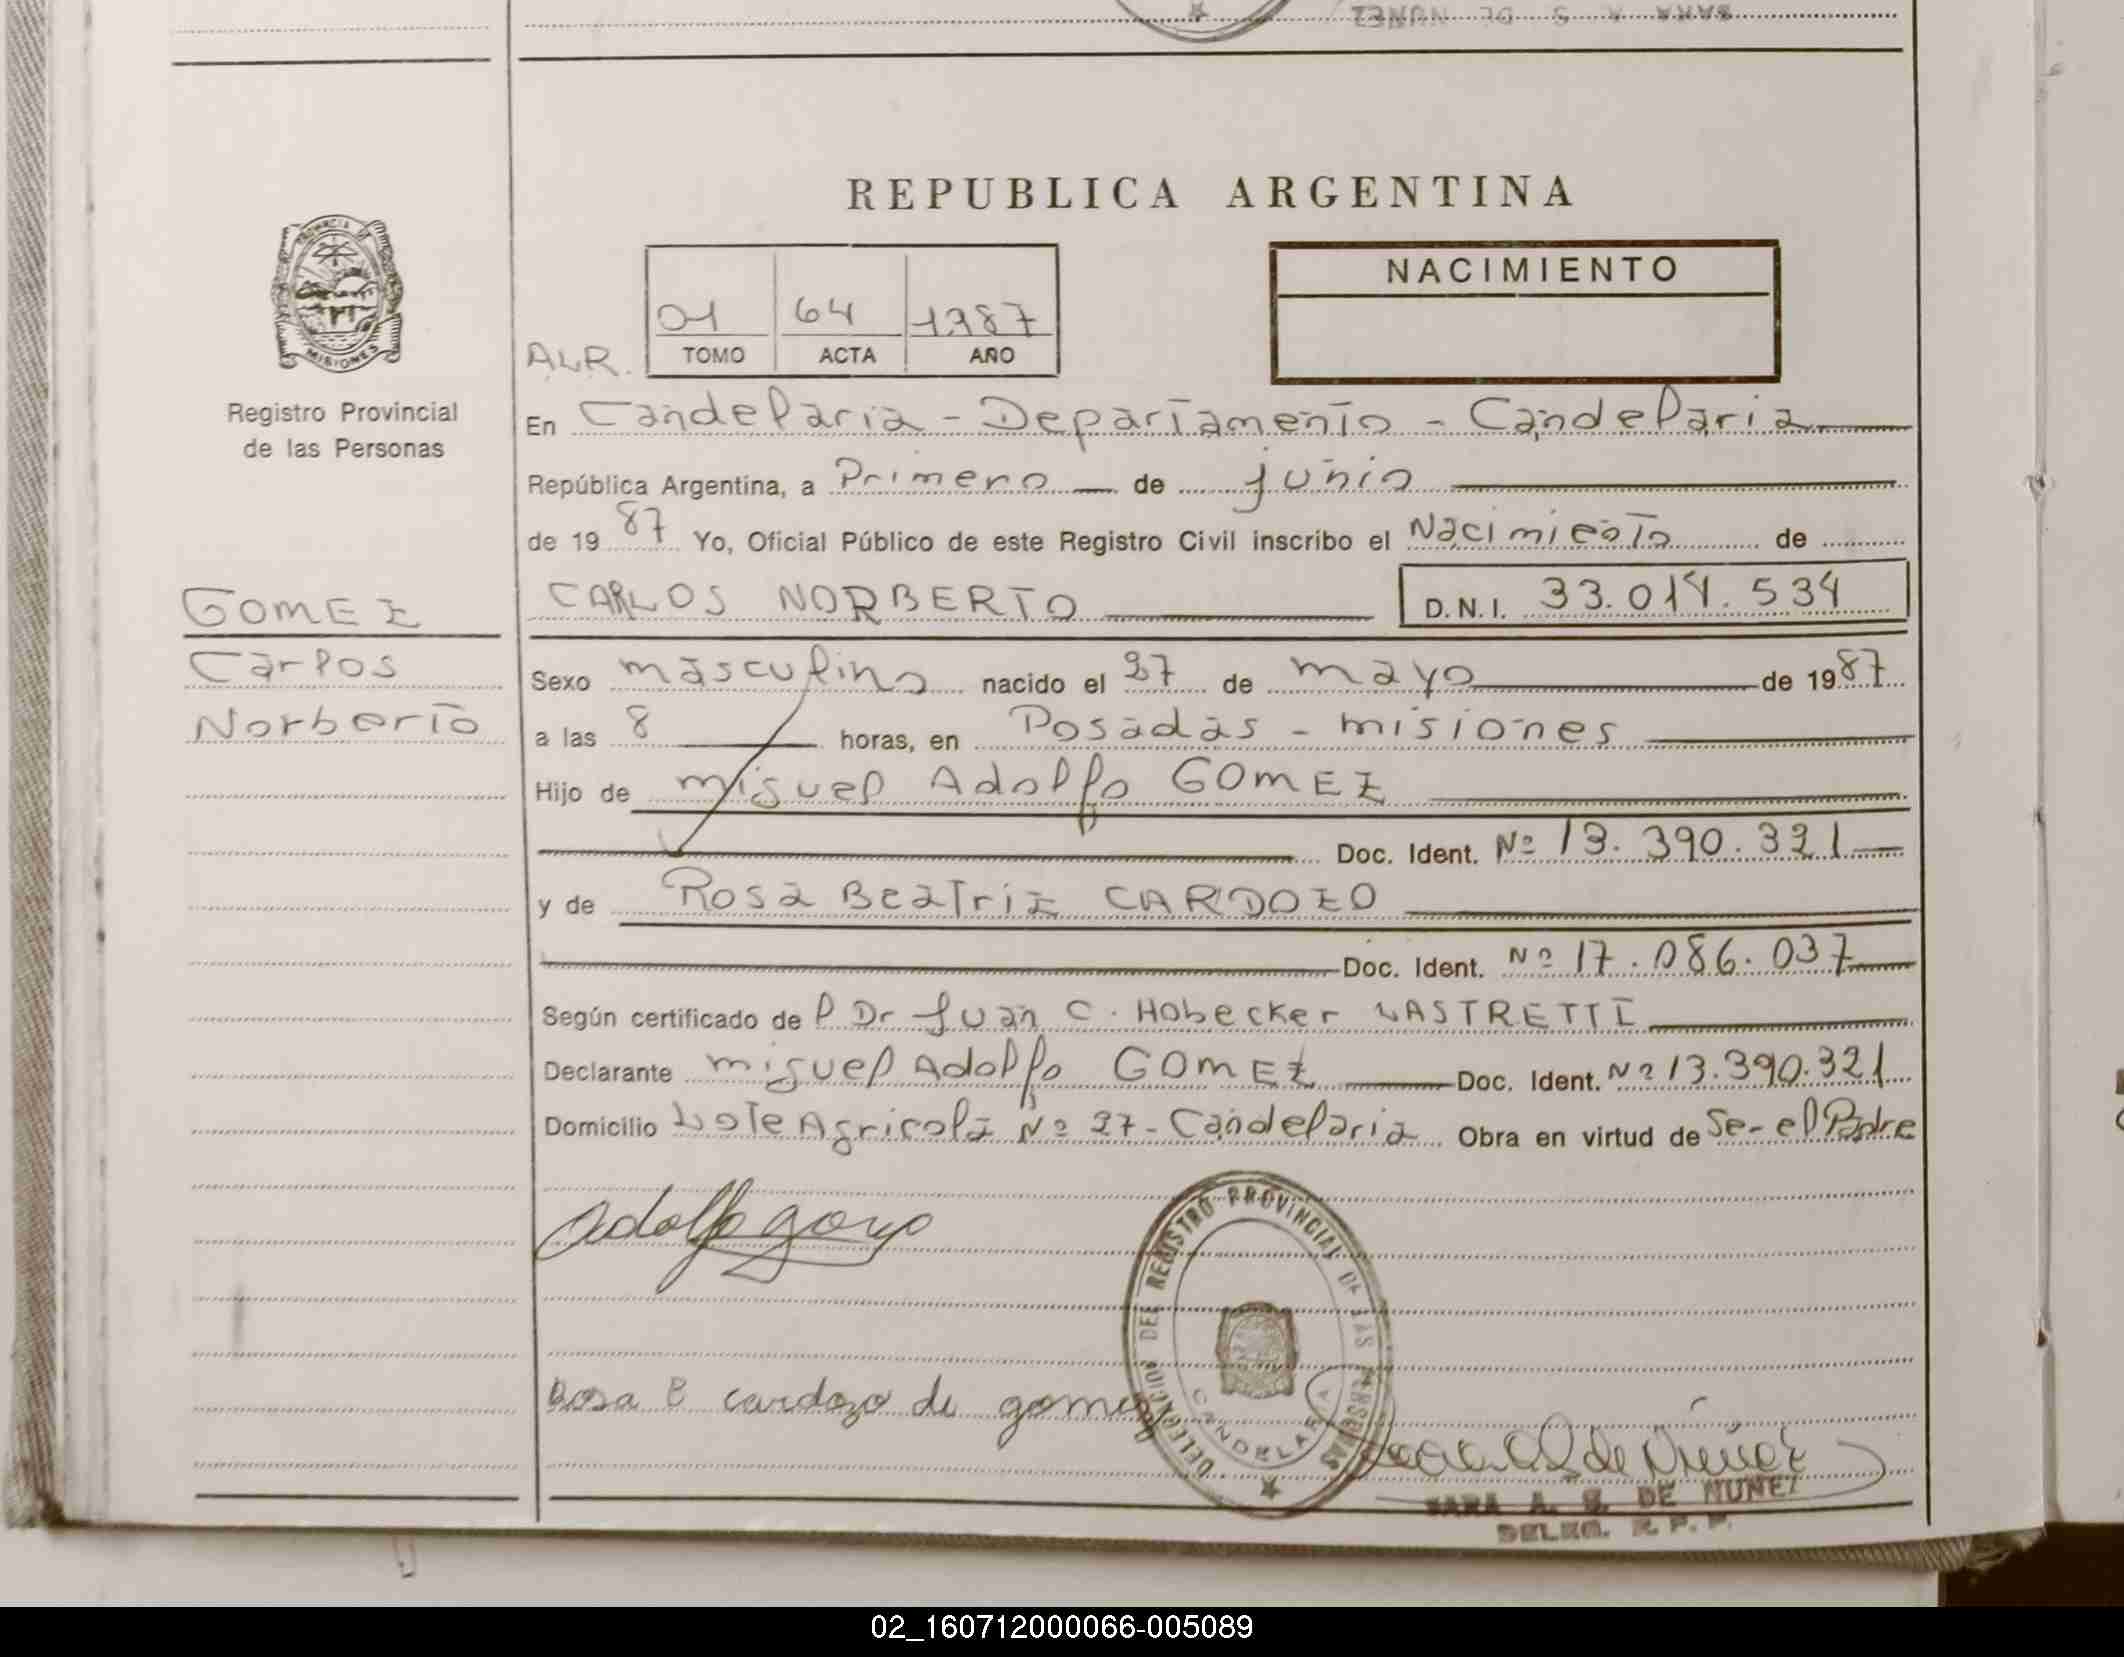 SARA A S DE NUÑEZ
REPUBLICA ARGENTINA
PROVINCIA DE MISIONES
Registro Provincial
de las Personas
NACIMIENTO
01 64 1987
TOMO ACTA AÑO
ALR.
En Candelaria - Departamento - Candelaria
República Argentina, a Primero de junio
de 19 87 Yo, Oficial Público de este Registro Civil inscribo el Nacimiento de
GOMEZ
Carlos
Norberto
CARLOS NORBERTO D.N.I. 33.014.534
Sexo masculino nacido el 27 de mayo de 19 87
a las 8 horas, en Posadas - misiones
Hijo de miguel Adolfo GOMEZ
Doc. Ident. Nº 13.390.321
y de Rosa Beatriz CARDOZO
Doc. Ident. Nº 17.086.037
Según certificado de l Dr Juan C. Hobecker LASTRETTI
Declarante miguel Adolfo GOMEZ Doc. Ident. Nº 13.390.321
Domicilio Lote Agricola Nº 27 - Candelaria Obra en virtud de Ser el Padre
Adolfo gomez
DELEGACION DEL REGISTRO PROVINCIAL DE LAS PERSONAS
CANDELARIA
Rosa B cardozo de gomez
Sara A S de Nuñez
SARA A. S. DE NUÑEZ
DELEG. R. P. P.
02_160712000066-005089